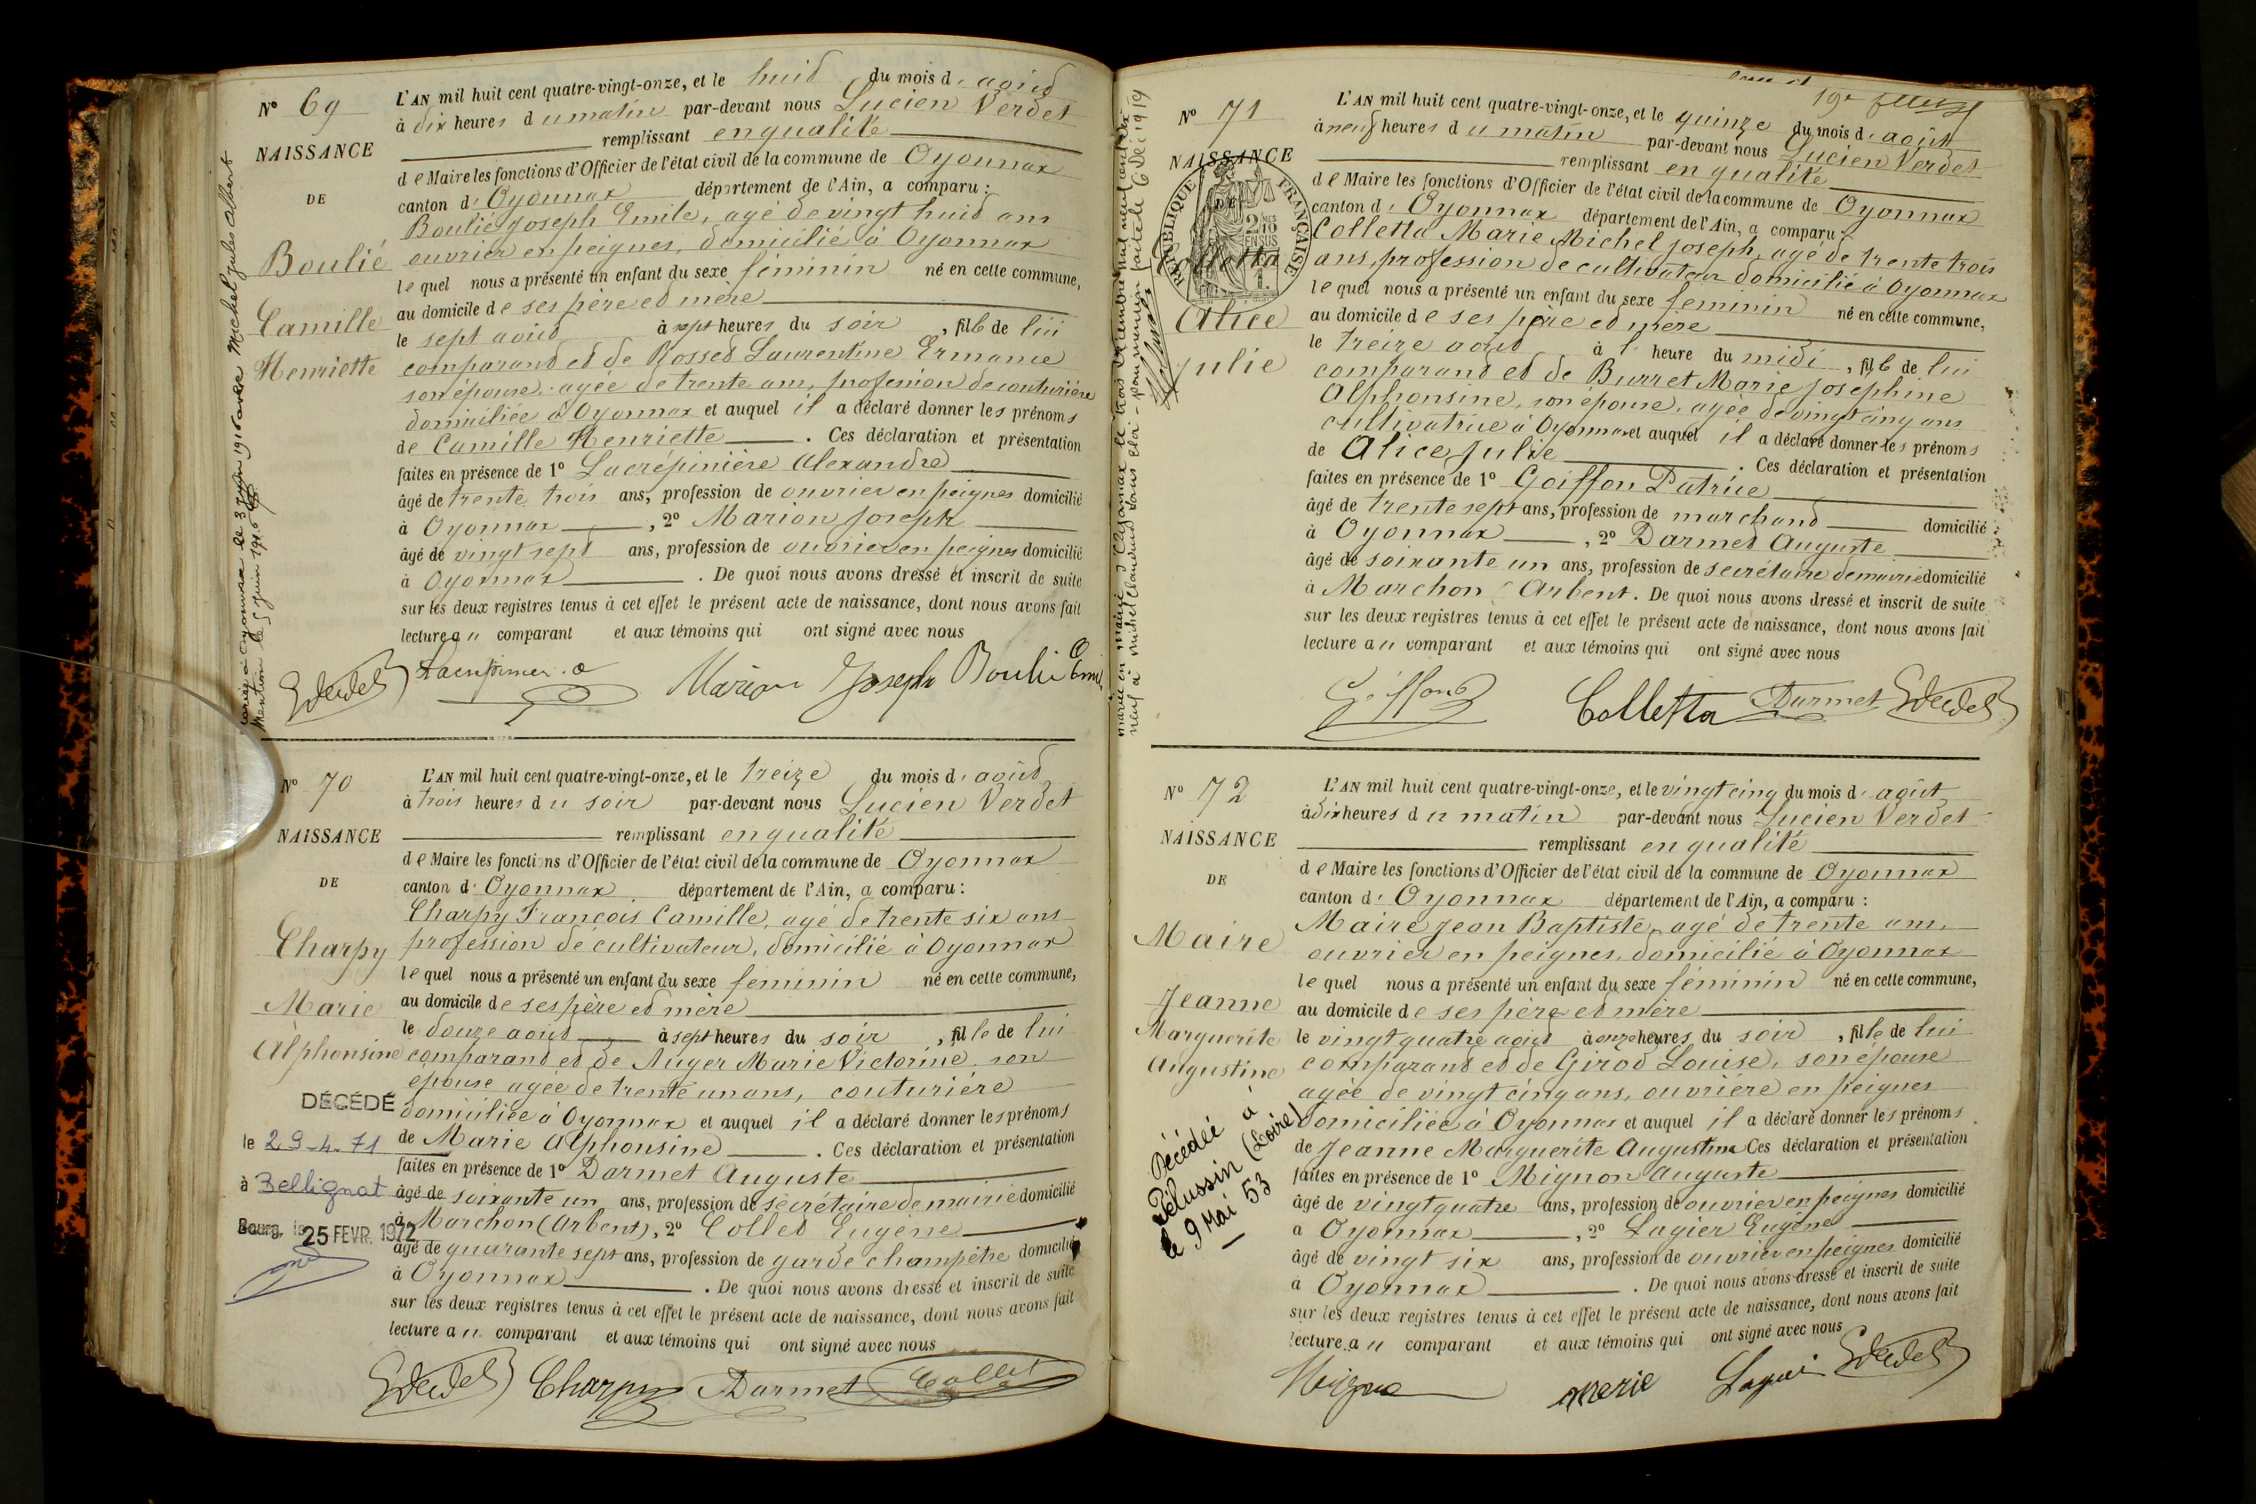 N° 69
NAISSANCE
DE
Boulié
Camille
Henriette
L'AN mil huit cent quatre-vingt-onze, et le huit du mois d' août
à dix heures du matin par-devant nous Lucien Verdet
remplissant en qualité
de Maire les fonctions d'Officier de l'état civil de la commune de Oyonnax
canton d' Oyonnax département de l'Ain, a comparu :
Boulié Joseph Emile, agé de vingt huit ans
ouvrier en peignes, domicilié à Oyonnax
lequel nous a présenté un enfant du sexe féminin né en cette commune,
au domicile de ses père et mère
le sept août à sept heures du soir, fille de lui
comparant et de Rosset Laurentine Ermance
son épouse, agée de trente ans, profession de couturière
domiciliée à Oyonnax et auquel il a déclaré donner les prénoms
de Camille Henriette. Ces déclaration et présentation
faites en présence de 1° Lacrépinière Alexandre
âgé de trente trois ans, profession de ouvrier en peignes domicilié
à Oyonnax, 2° Marion Joseph
âgé de vingt sept ans, profession de ouvrier en peignes domicilié
à Oyonnax. De quoi nous avons dressé et inscrit de suite
sur les deux registres tenus à cet effet le présent acte de naissance, dont nous avons fait
lecture au comparant et aux témoins qui ont signé avec nous
Marion Joseph Boulié Emile
mariée à Oyonnax le 3 juin 1916 avec Michel Jules Albert
Mention le 5 juin 1916
N° 70
NAISSANCE
DE
Charpy
Marie
Alphonsine
DÉCÉDÉ
le 29-4-71
à Bellignat
Bourg, le 25 FEVR. 1972
L'AN mil huit cent quatre-vingt-onze, et le treize du mois d' août
à trois heures du soir par-devant nous Lucien Verdet
remplissant en qualité
de Maire les fonctions d'Officier de l'état civil de la commune de Oyonnax
canton d' Oyonnax département de l'Ain, a comparu :
Charpy François Camille, agé de trente six ans
profession de cultivateur, domicilié à Oyonnax
lequel nous a présenté un enfant du sexe féminin né en cette commune,
au domicile de ses père et mère
le douze août à sept heures du soir, fille de lui
comparant et de Auger Marie Victorine, son
épouse agée de trente un ans, couturière
domiciliée à Oyonnax et auquel il a déclaré donner les prénoms
de Marie Alphonsine. Ces déclaration et présentation
faites en présence de 1° Darmet Auguste
âgé de soixante un ans, profession de secrétaire de mairie domicilié
à Marchon (Arbent), 2° Collet Eugène
âgé de quarante sept ans, profession de garde champêtre domicilié
à Oyonnax. De quoi nous avons dressé et inscrit de suite
sur les deux registres tenus à cet effet le présent acte de naissance, dont nous avons fait
lecture au comparant et aux témoins qui ont signé avec nous
Charpy Darmet Collet
N° 71
NAISSANCE
DE
Colletta
Alice
Julie
RÉPUBLIQUE FRANÇAISE
2/10 EN SUS
mariée à Oyonnax le trois décembre mil neuf cent dix
neuf à Michel Claudius Louis Eloi
L'AN mil huit cent quatre-vingt-onze, et le quinze du mois d' août
à neuf heures du matin par-devant nous Lucien Verdet
remplissant en qualité
de Maire les fonctions d'Officier de l'état civil de la commune de Oyonnax
canton d' Oyonnax département de l'Ain, a comparu :
Colletta Marie Michel Joseph, agé de trente trois
ans, profession de cultivateur domicilié à Oyonnax
lequel nous a présenté un enfant du sexe féminin né en cette commune,
au domicile de ses père et mère
le treize août à l' heure du midi, fille de lui
comparant et de Burret Marie Joséphine
Alphonsine, son épouse, agée de vingt cinq ans
cultivatrice à Oyonnax et auquel il a déclaré donner les prénoms
de Alice Julie. Ces déclaration et présentation
faites en présence de 1° Goiffon Patrice
âgé de trente sept ans, profession de marchand domicilié
à Oyonnax, 2° Darmet Auguste
âgé de soixante un ans, profession de secrétaire de mairie domicilié
à Marchon Arbent. De quoi nous avons dressé et inscrit de suite
sur les deux registres tenus à cet effet le présent acte de naissance, dont nous avons fait
lecture au comparant et aux témoins qui ont signé avec nous
Goiffon Colletta Darmet
N° 72
NAISSANCE
DE
Maire
Jeanne
Marguerite
Augustine
Décédée à
Pélussin (Loire)
le 9 Mai 53
L'AN mil huit cent quatre-vingt-onze, et le vingt cinq du mois d' août
à dix heures du matin par-devant nous Lucien Verdet
remplissant en qualité
de Maire les fonctions d'Officier de l'état civil de la commune de Oyonnax
canton d' Oyonnax département de l'Ain, a comparu :
Maire Jean Baptiste, agé de trente ans,
ouvrier en peignes, domicilié à Oyonnax
lequel nous a présenté un enfant du sexe féminin né en cette commune,
au domicile de ses père et mère
le vingt quatre août à onze heures du soir, fille de lui
comparant et de Girod Louise, son épouse
agée de vingt cinq ans, ouvrière en peignes
domiciliée à Oyonnax et auquel il a déclaré donner les prénoms
de Jeanne Marguerite Augustine Ces déclaration et présentation
faites en présence de 1° Mignon Auguste
âgé de vingt quatre ans, profession de ouvrier en peignes domicilié
à Oyonnax, 2° Lagier Eugène
âgé de vingt six ans, profession de ouvrier en peignes domicilié
à Oyonnax. De quoi nous avons dressé et inscrit de suite
sur les deux registres tenus à cet effet le présent acte de naissance, dont nous avons fait
lecture au comparant et aux témoins qui ont signé avec nous